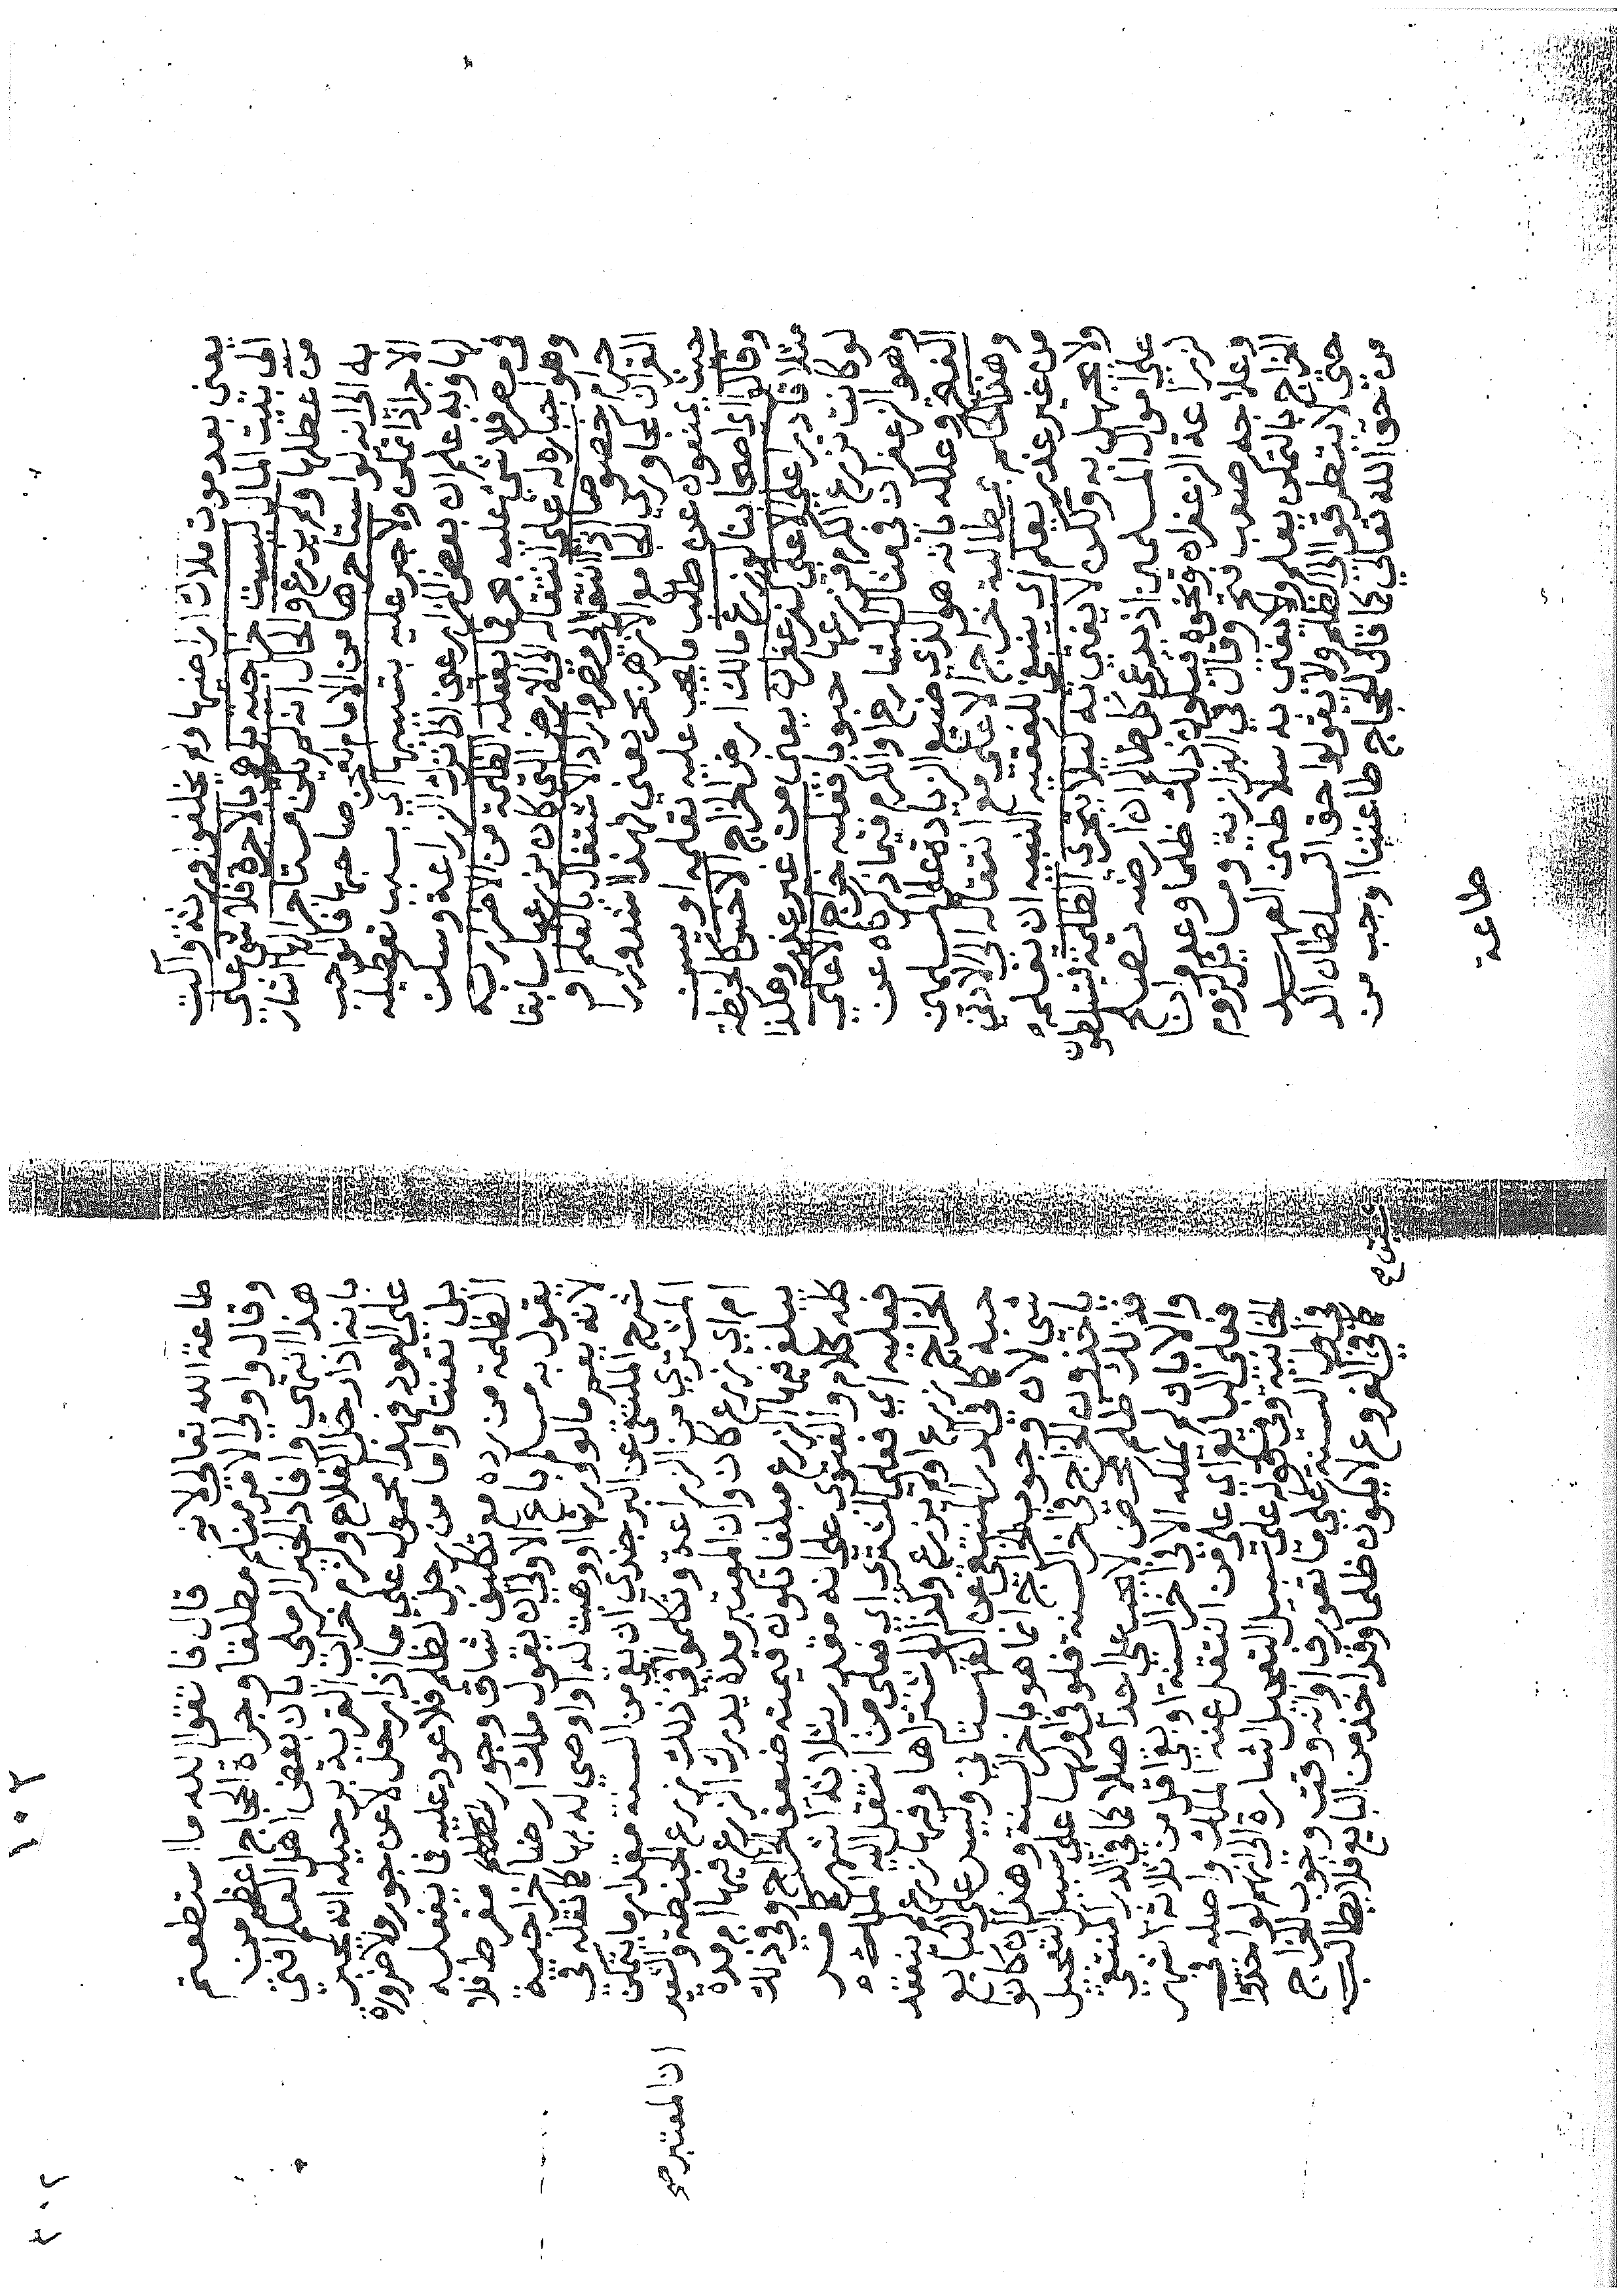 يعنى بعد موت ملاك اراضيها ولم يخلفوا ورثة والت
الى بيت المال ليست خراجية بل هى بالاجرة فلا شى على
من عطلها ولم يزرع والحال انه لم يكن مستاجرا لها اشار
به الى انه لو استاجرها من الامام تمكن صاحبها فانه يجب
الاجر اذا تمكن ولا جبر عليه بتسيبها اي بسبب تعطيله
لها وبه علم ان بعض المزارعين اذا ترك الزراعة وسكن
في مصر فلا شى عليه فما يفعله الظلمة من الاضرار به
وهو اجباره له على انتقاله الى الارض التى كان يزرعها سابقا
حرام خصوصا اذا انتقل الى مصر واراد الاشتغال بالعلم او
القران كمجاوري الجامع الازهر بحر يعنى لهذا شدد وزرا
حيث يمنعون عن طلب ما يجب عليه تعلمه او يسن
وقالوا اى اصحابنا لو زرع مالك ارض الخراج الاخس كالحنطة
مثلا قادرا على الاعلى كزعفران يعنى من غير عذر وهكذا
لو كانت تزرع الكرم فزرعها حبوبا فعليه خراج الاعلى
وهو الزعفران في عنا للشارع والكرم فيما ذكرناه عن
الفتح وعلله بانه هو الذي ضيع الزيادة على المسلمين
وهذا اى الحكم بمطالبة خراج الاعلى مع انتقاله الى الادنى
من غير عذر يعلم اى ينبغى للفقيه النبيه ان يعلمه
ولا يجهل به ولكن لا يفتى به ليلا يتجرى الظلمة فيتسلطون
على اموال المسلمين اذ يدعى كل ظالم ان ارضه تصلح
لزراعة الزعفران ونحوه فيكون ذلك ظلما وعدوانا
وعلاجه صعب فتح وقال في البزازية ومسايل لزوم
الخراج بالتمكن يعلم ولا يفتى به سلاطين العهد
حتى لا يتطرقوا الى الظلم ولا يقولوا حق السلطان الد
من حق الله تعالى كما قال الحجاج طاعتنا اوجب من
طاعة
طاعة الله تعالى لانه قال فاتقوا الله ما استطعتم
وقال واولي الامر منكم مطلقا وجراة الحجاج اعظم من
هذا انتهى وافاد الخير الرملى بان بعض اهل العلم افتى
بانه اذا رحل الفلاح ولزم خراب القرية برحيله انه يجبر
على العود فهذا محمول على ما اذا رحل لا عن جور ولا ضرورة
بل تعنتا واما من رحل لظلم فلا عود عليه فما يفعله
الظلمة من رده مع تكليف شاق وجور مفرط فلا
يقول به مسلم باع الاولى ان يقول ملك ارضا خراجية
لانه يعم ما لو ورثها او وهبت له او اوصى له بها كما نقله في
شرح الملتقى عن البرجندي ان بقى من السنة مقدار ما يتمكن
المشتري من الزراعة وتكلموا في ذلك زرع الحنطة والشعير
ام اي زرع كان وان المعتبر مدة يدرك الزرع فيها ام مدة
يبلغ فيها الزرع مبلغا تكون قيمته ضعف الخراج وفى ذلك
كله كلام والفتوى على انه مقدر بثلاثة اشهر مصر
فعليه اي فعلى المشتري اى فعلى من انتقل اليه الملك
الخراج زرع او لم يزرع وكذا لو اشتراها وفيها زرع لم ينعقد
حبه كما في الدر المنتقى عن القهستانى وليس على البايع
شى لان وجوب الخراج انما هو باخر السنة وهذا ان كانوا
ياخذون الخراج في اخر السنة فلو في اولها على سبيل التعجيل
فذلك ظلم محض لا يجب على احد اصلا كما في الدر المنتقى
والا بان لم يملكه الا فى اخر السنة او بقى اقل من ثلاثة اشهر
فعلى البايع اي على من انتقل عنه الملك واصله في
الخانية وقوله على سبيل التعجيل اشارة الى انهم لو اخذوا
في اول السنة على ما تقرر في اوانه وقت وجوب الخراج
كما في الفروع لا يكون ظلما وقد اخذ من البايع فلا يطالب
ان المعتبر صح
١٠٢